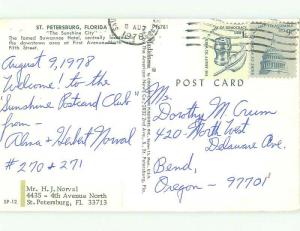 ST. PETERSBURG, FLORIDA
"The Sunshine City"
The famed Soreno Hotel, centrally
the downtown area at First Avenue North
Fifth Street.
AUG
1978
POST CARD
August 9, 1978
Welcome! to the
"Sunshine Postcard Club"
from -
Alma + Herbert Norval
#270 + 271
Ms.
Dorothy M. Crum
420 North West
Delaware Ave.
Bend,
Oregon - 97701
Mr. H. J. Norval
4435 - 4th Avenue North
St. Petersburg, FL 33713
SP-12